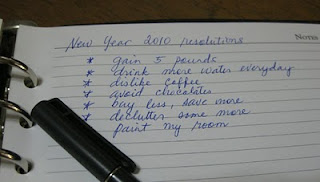 NOTES
New Year 2010 resolutions
* gain 5 pounds
* drink more water everyday
* dislike coffee
* avoid chocolates
* buy less, save more
* declutter some more
paint my room